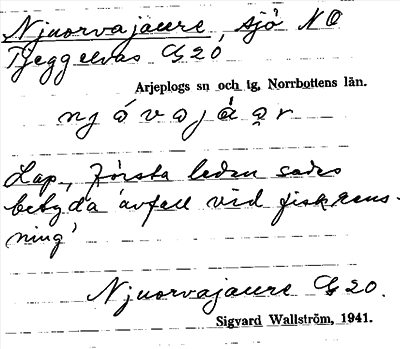 Njuorvajaure, sjö NO
Tjeggelvas G20
Arjeplogs sn och tg, Norrbottens län.
njóvajáər
Lap., Första leden sades
betyda 'avfall vid fiskrens-
ning'
Njuorvajaure G20.
Sigvard Wallström, 1941.